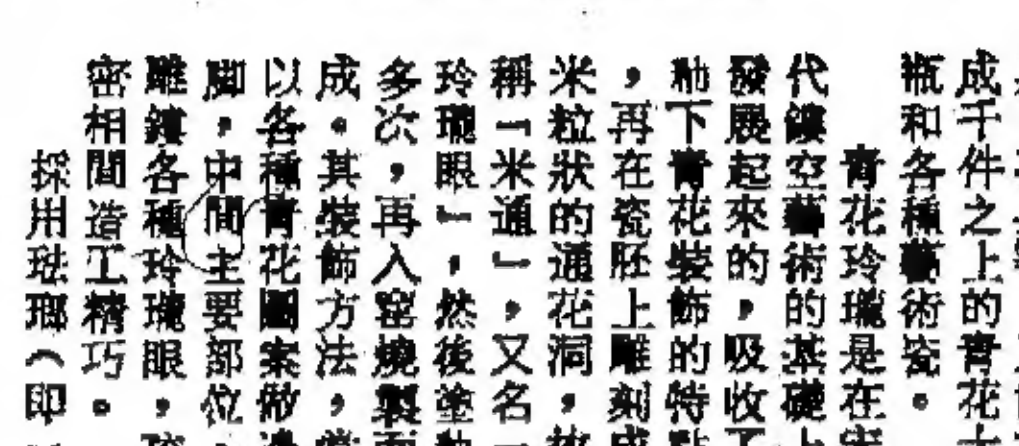 成千件之上的青花
瓶和各種藝術瓷。
青花玲瓏是在
代鏤空藝術的基礎上
發展起來的,吸收了
釉下青花裝飾的特點
,再在瓷胚上雕刻成
米粒狀的通花洞,故
稱「米通」,又名「
玲瓏眼」,然後塗釉
多次,再入窰燒製而
成。其裝飾方法,常
以各種青花圖案做邊
脚,中間主要部位,
雕鏤各種玲瓏眼,
密相間造工精巧。
採用琺瑯(即